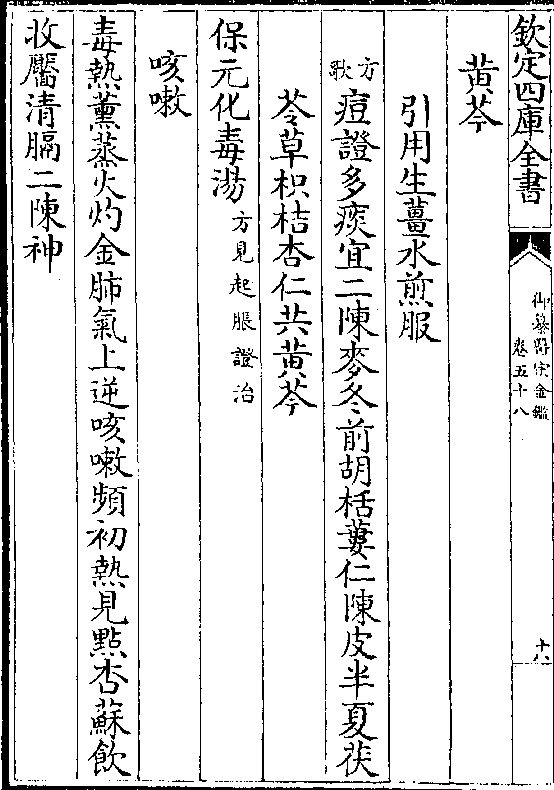 欽定四庫全書
御纂醫宗金鑑
卷五十八
十八
黃芩
引用生薑水煎服
方歌
痘證多痰宜二陳麥冬前胡栝蔞仁陳皮半夏茯
苓草枳桔杏仁共黃芩
保元化毒湯方見起脹證治
咳嗽
毒熱薰蒸火灼金肺氣上逆咳嗽頻初熱見點杏蘇飲
收靨清膈二陳神